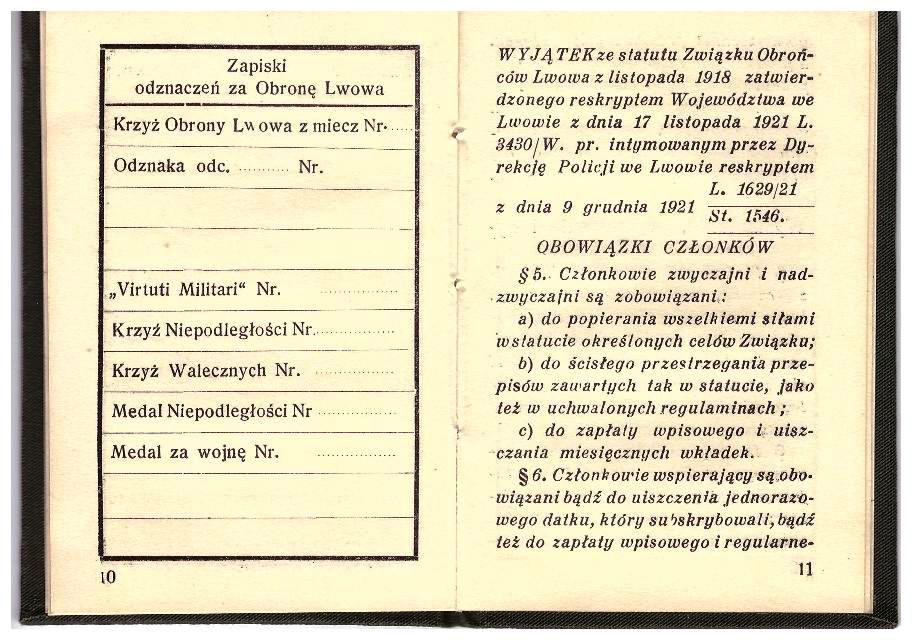 Zapiski
odznaczeń za Obronę Lwowa
Krzyż Obrony Lwowa z miecz Nr.....
Odznaka odc. ........... Nr.
„Virtuti Militari“ Nr. ................
Krzyż Niepodległości Nr.................
Krzyż Walecznych Nr. ................
Medal Niepodległości Nr ................
Medal za wojnę Nr. ................
10
WYJĄTEK ze statutu Związku Obroń-
ców Lwowa z listopada 1918 zatwier-
dzonego reskryptem Województwa we
Lwowie z dnia 17 listopada 1921 L.
3430/W. pr. intymowanym przez Dy-
rekcję Policji we Lwowie reskryptem
L. 1629/21
z dnia 9 grudnia 1921
St. 1546.
OBOWIĄZKI CZŁONKÓW
§ 5. Członkowie zwyczajni i nad-
zwyczajni są zobowiązani:
a) do popierania wszelkiemi siłami
w statucie określonych celów Związku;
b) do ścisłego przestrzegania prze-
pisów zawartych tak w statucie, jako
też w uchwalonych regulaminach;
c) do zapłaty wpisowego i uisz-
czania miesięcznych wkładek.
§ 6. Członkowie wspierający są obo-
wiązani bądź do uiszczenia jednorazo-
wego datku, który subskrybowali, bądź
też do zapłaty wpisowego i regularne-
11